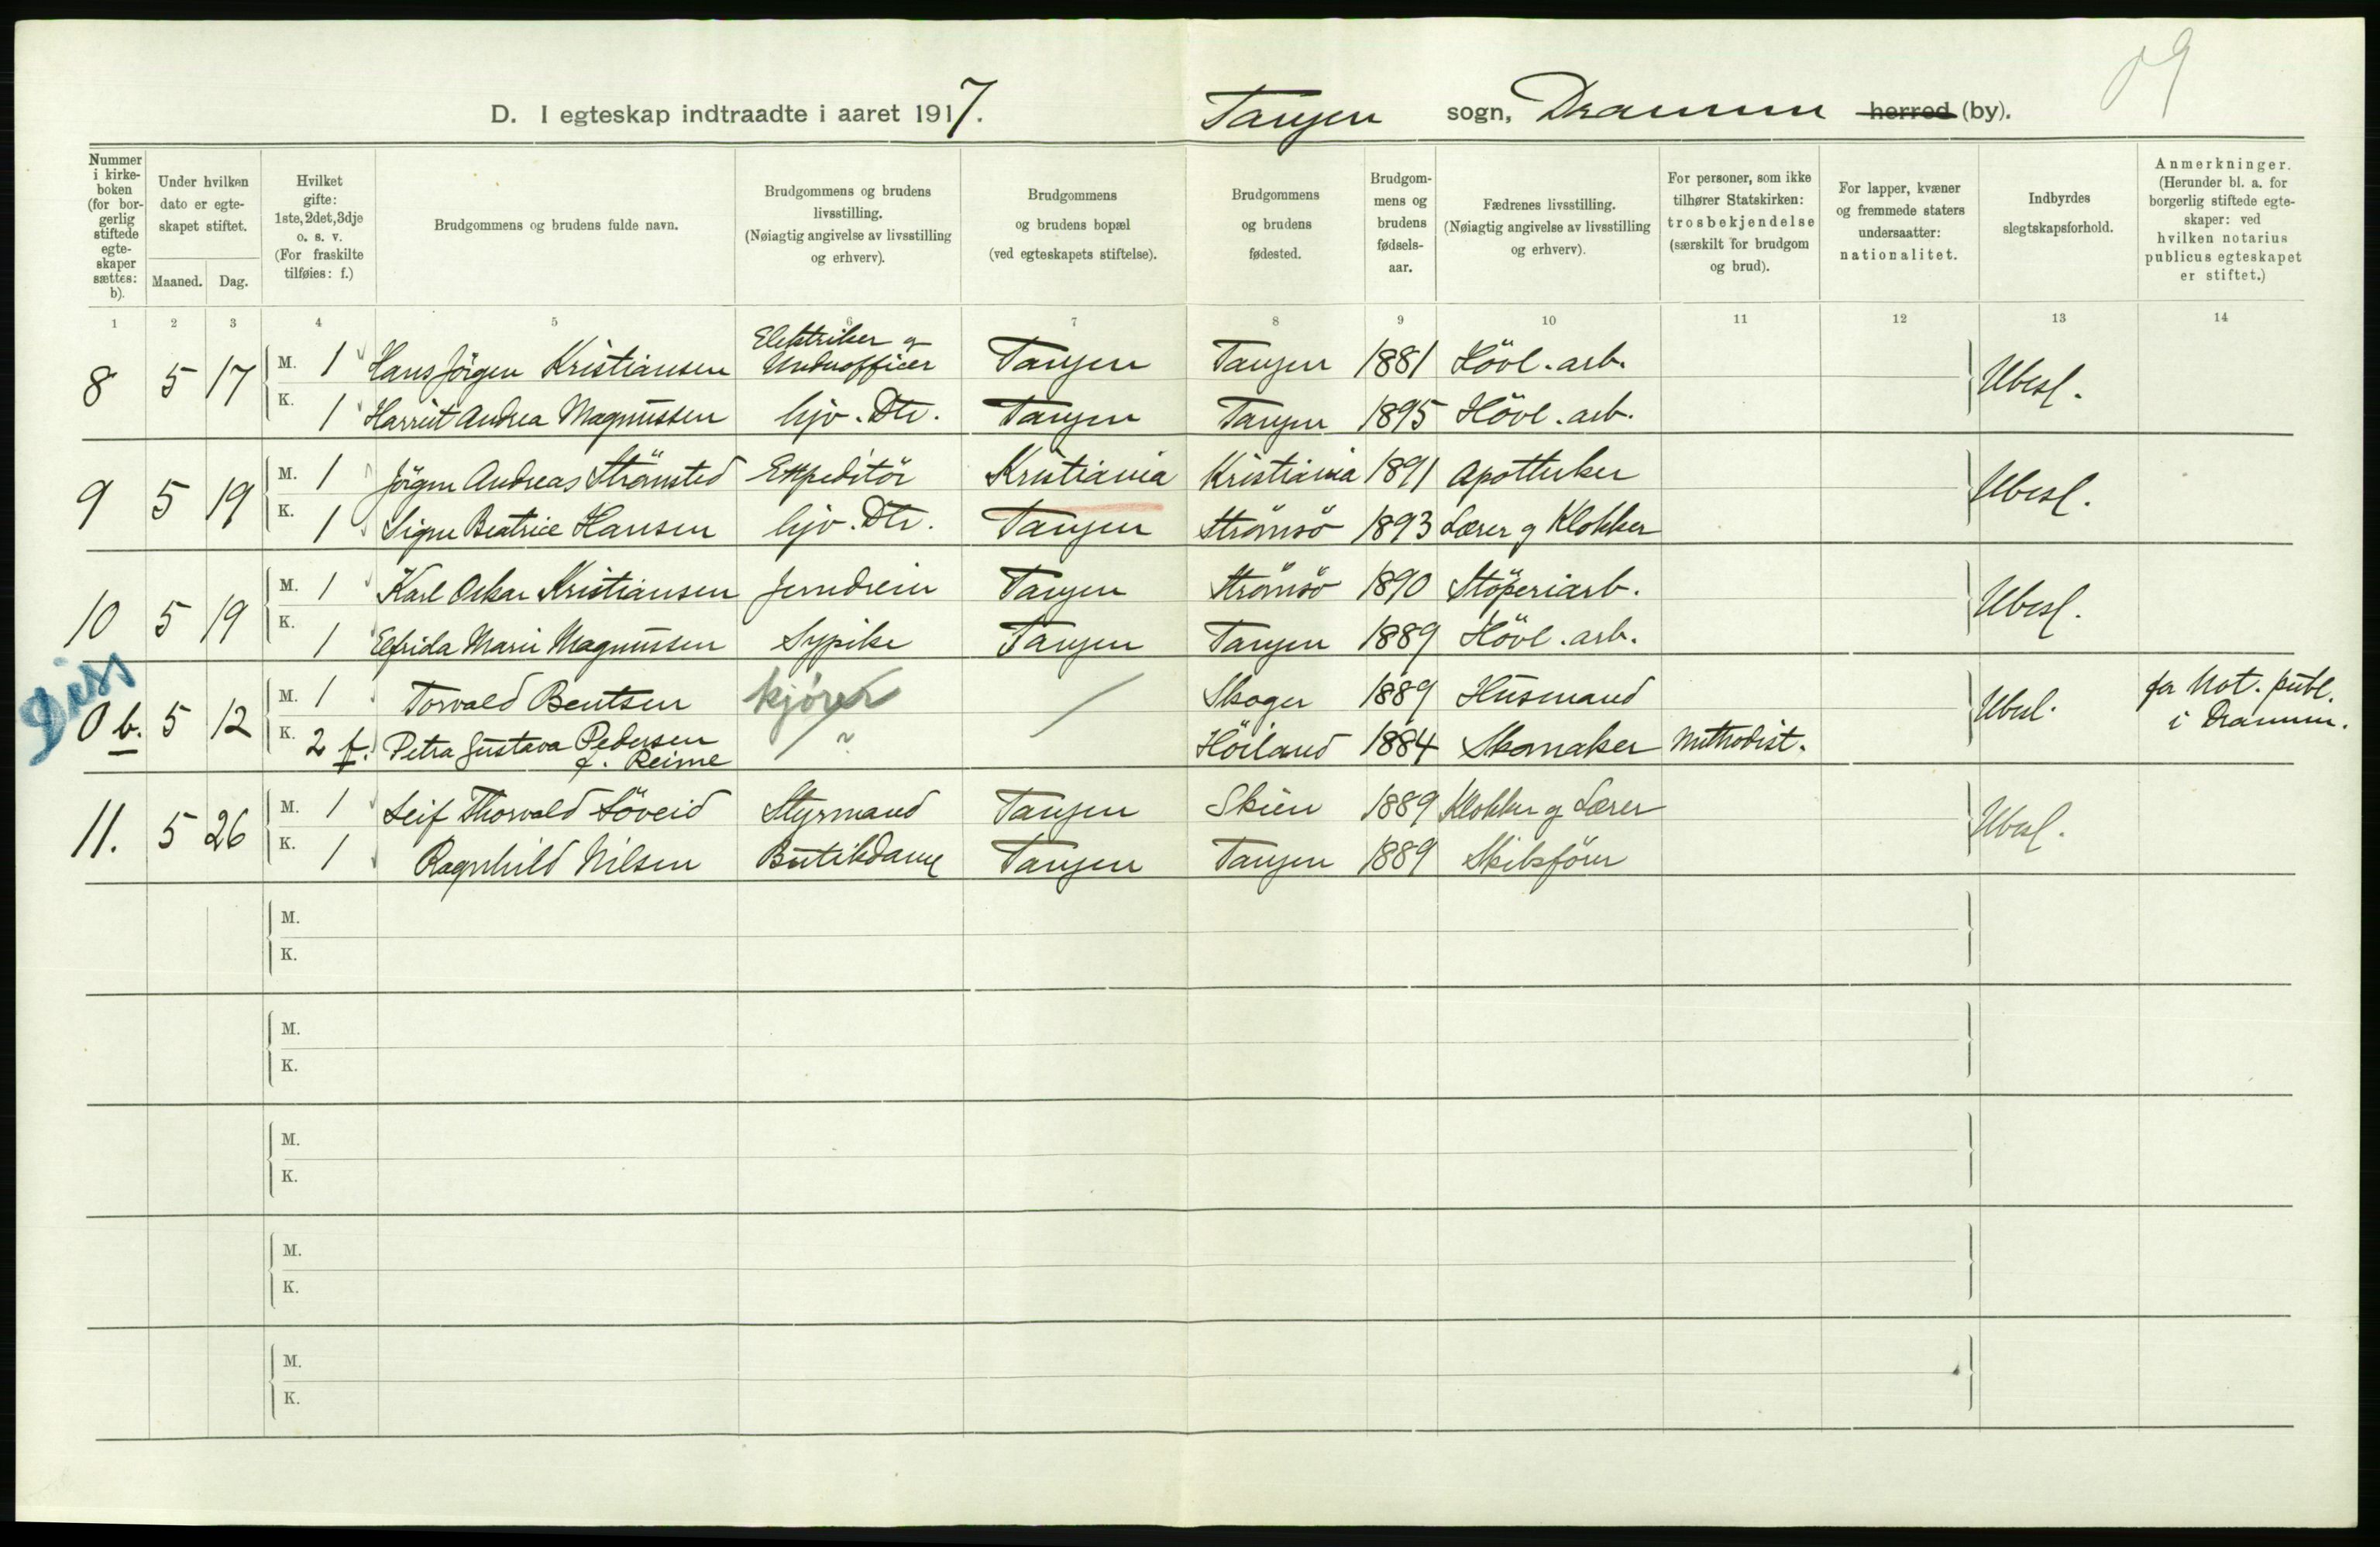 09
D. I egteskap indtraadte i aaret 1917. Tangen sogn, Drammen herred (by).
Nummer i kirke-boken (for bor-gerlig stiftede egte-skaper sættes: b).
Under hvilken dato er egte-skapet stiftet.
Maaned. Dag.
Hvilket gifte: 1ste, 2det, 3dje o. s. v. (For fraskilte tilføies: f.)
Brudgommens og brudens fulde navn.
Brudgommens og brudens livsstilling. (Nøiagtig angivelse av livsstilling og erhverv).
Brudgommens og brudens bopæl (ved egteskapets stiftelse).
Brudgommens og brudens fødested.
Brudgom-mens og brudens fødsels-aar.
Fædrenes livsstilling. (Nøiagtig angivelse av livsstilling og erhverv).
For personer, som ikke tilhører Statskirken: trosbekjendelse (særskilt for brudgom og brud).
For lapper, kvæner og fremmede staters undersaatter: nationalitet.
Indbyrdes slegtskapsforhold.
Anmerkninger. (Herunder bl. a. for borgerlig stiftede egte-skaper: ved hvilken notarius publicus egteskapet er stiftet.)
1 2 3 4 5 6 7 8 9 10 11 12 13 14
8 5 17 M. 1 Hans Jörgen Kristiansen Elektriker og Underofficer Tangen Tangen 1881 Hövl. arb. Ubesl.
K. 1 Harriet Andrea Magnussen hjv. Dtr. Tangen Tangen 1895 Hövl. arb.
9 5 19 M. 1 Jörgen Andreas Strömsted Expeditör Kristiania Kristiania 1891 Apotheker Ubesl.
K. 1 Signe Beatrice Hansen hjv. Dtr. Tangen Strömsö 1893 Lærer og Klokker
10 5 19 M. 1 Karl Oskar Kristiansen Jerndreier Tangen Strömsö 1890 Stöperiarb. Ubesl.
K. 1 Elfrida Marie Magnussen Sypike Tangen Tangen 1889 Hövl. arb.
Diss
0 b. 5 12 M. 1 Torvald Bentsen kjører Skoger 1889 Husmand Ubesl. for Not. publ. i Drammen.
K. 2 f. Petra Gustava Pedersen f. Reime ~ Höiland 1884 Skomaker Methodist.
11. 5 26 M. 1 Leif Thorvald Löveid Styrmand Tangen Skien 1889 Klokker og Lærer Ubesl.
K. 1 Ragnhild Nilsen Butikdame Tangen Tangen 1889 Skibsförer
M.
K.
M.
K.
M.
K.
M.
K.
M.
K.